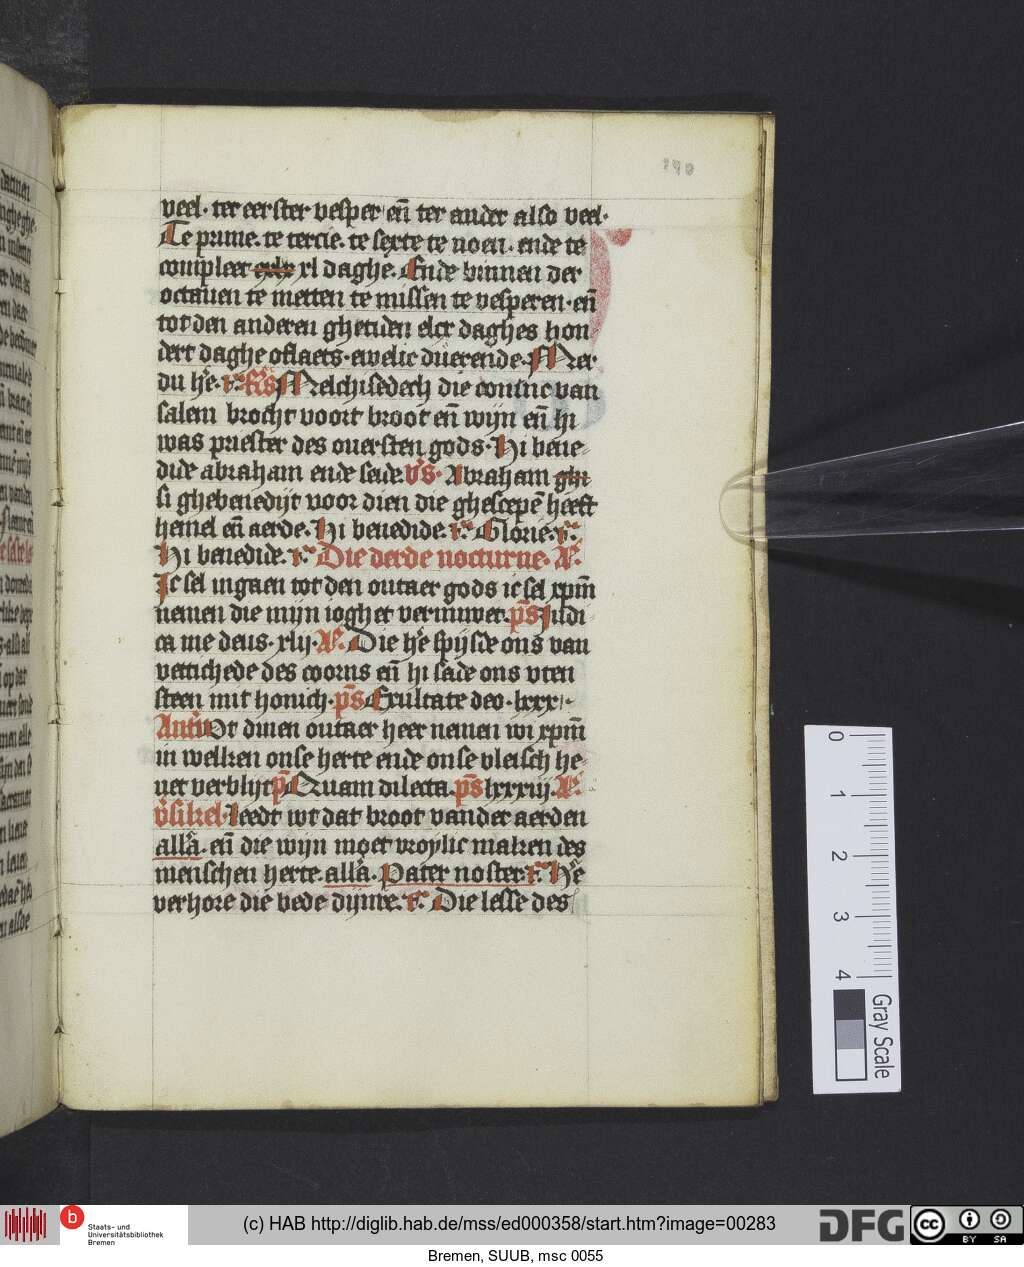 140
veel. ter eerster vesper eñ ter ander also veel.
Te prime. te tercie. te sexte te noen. ende te
compleet xl daghe. Ende binnen der
octauen te metten te missen te vesperen. eñ
tot den anderen ghetiden elcr daghes hon
dert daghe oflaets. ewelic duerende. Mer
du he. Rs Melchisedech die coninc van
salem brocht voort broot eñ wijn eñ hi
was priester des ouersten gods. Hi bene
dide abraham ende seide. v̄s. Abraham ghi
si ghebenedijt voor dien die ghescepē heeft
hemel eñ aerde. Hi benedide. Glorie.
Hi benedide. Die derde nocturne. A.
Ic sel ingaen tot den outaer gods ic sel xpm̄
nemen die mijn ioghet vernuwet. p̄s Iudi
ca me deus. xlij. A. Die he spijsde ons van
vettichede des coorns eñ hi sade ons vten
steen mit honich. p̄s Exultate deo. lxxx.
Ant Vt dinen outaer heer nemen wi xpm̄
in welken onse herte ende onse vleisch he
uet verblijt p̄ Quam dilecta. p̄s lxxxiij. A.
v̄sikel. leedt wt dat broot vander aerden
allā. eñ die wijn moet vroylic maken des
menschen herte allā. Pater noster. He
verhore die bede dijnre. Die lesse des
0 1 2 3 4
Gray Scale
b
Staats- und
Universitätsbibliothek
Bremen
(c) HAB http://diglib.hab.de/mss/ed000358/start.htm?image=00283
DFG
cc BY SA
Bremen, SUUB, msc 0055